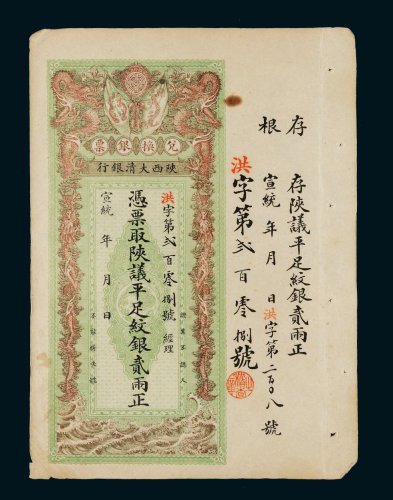 存根
存陝議平足紋銀貳兩正
宣統 年 月 日 洪字第二百〇八號
洪字第貳百零捌號
兌換銀票
陝西大清銀行
洪字第貳百零捌號 經理
憑票取陝議平足紋銀貳兩正
宣統 年 月 日